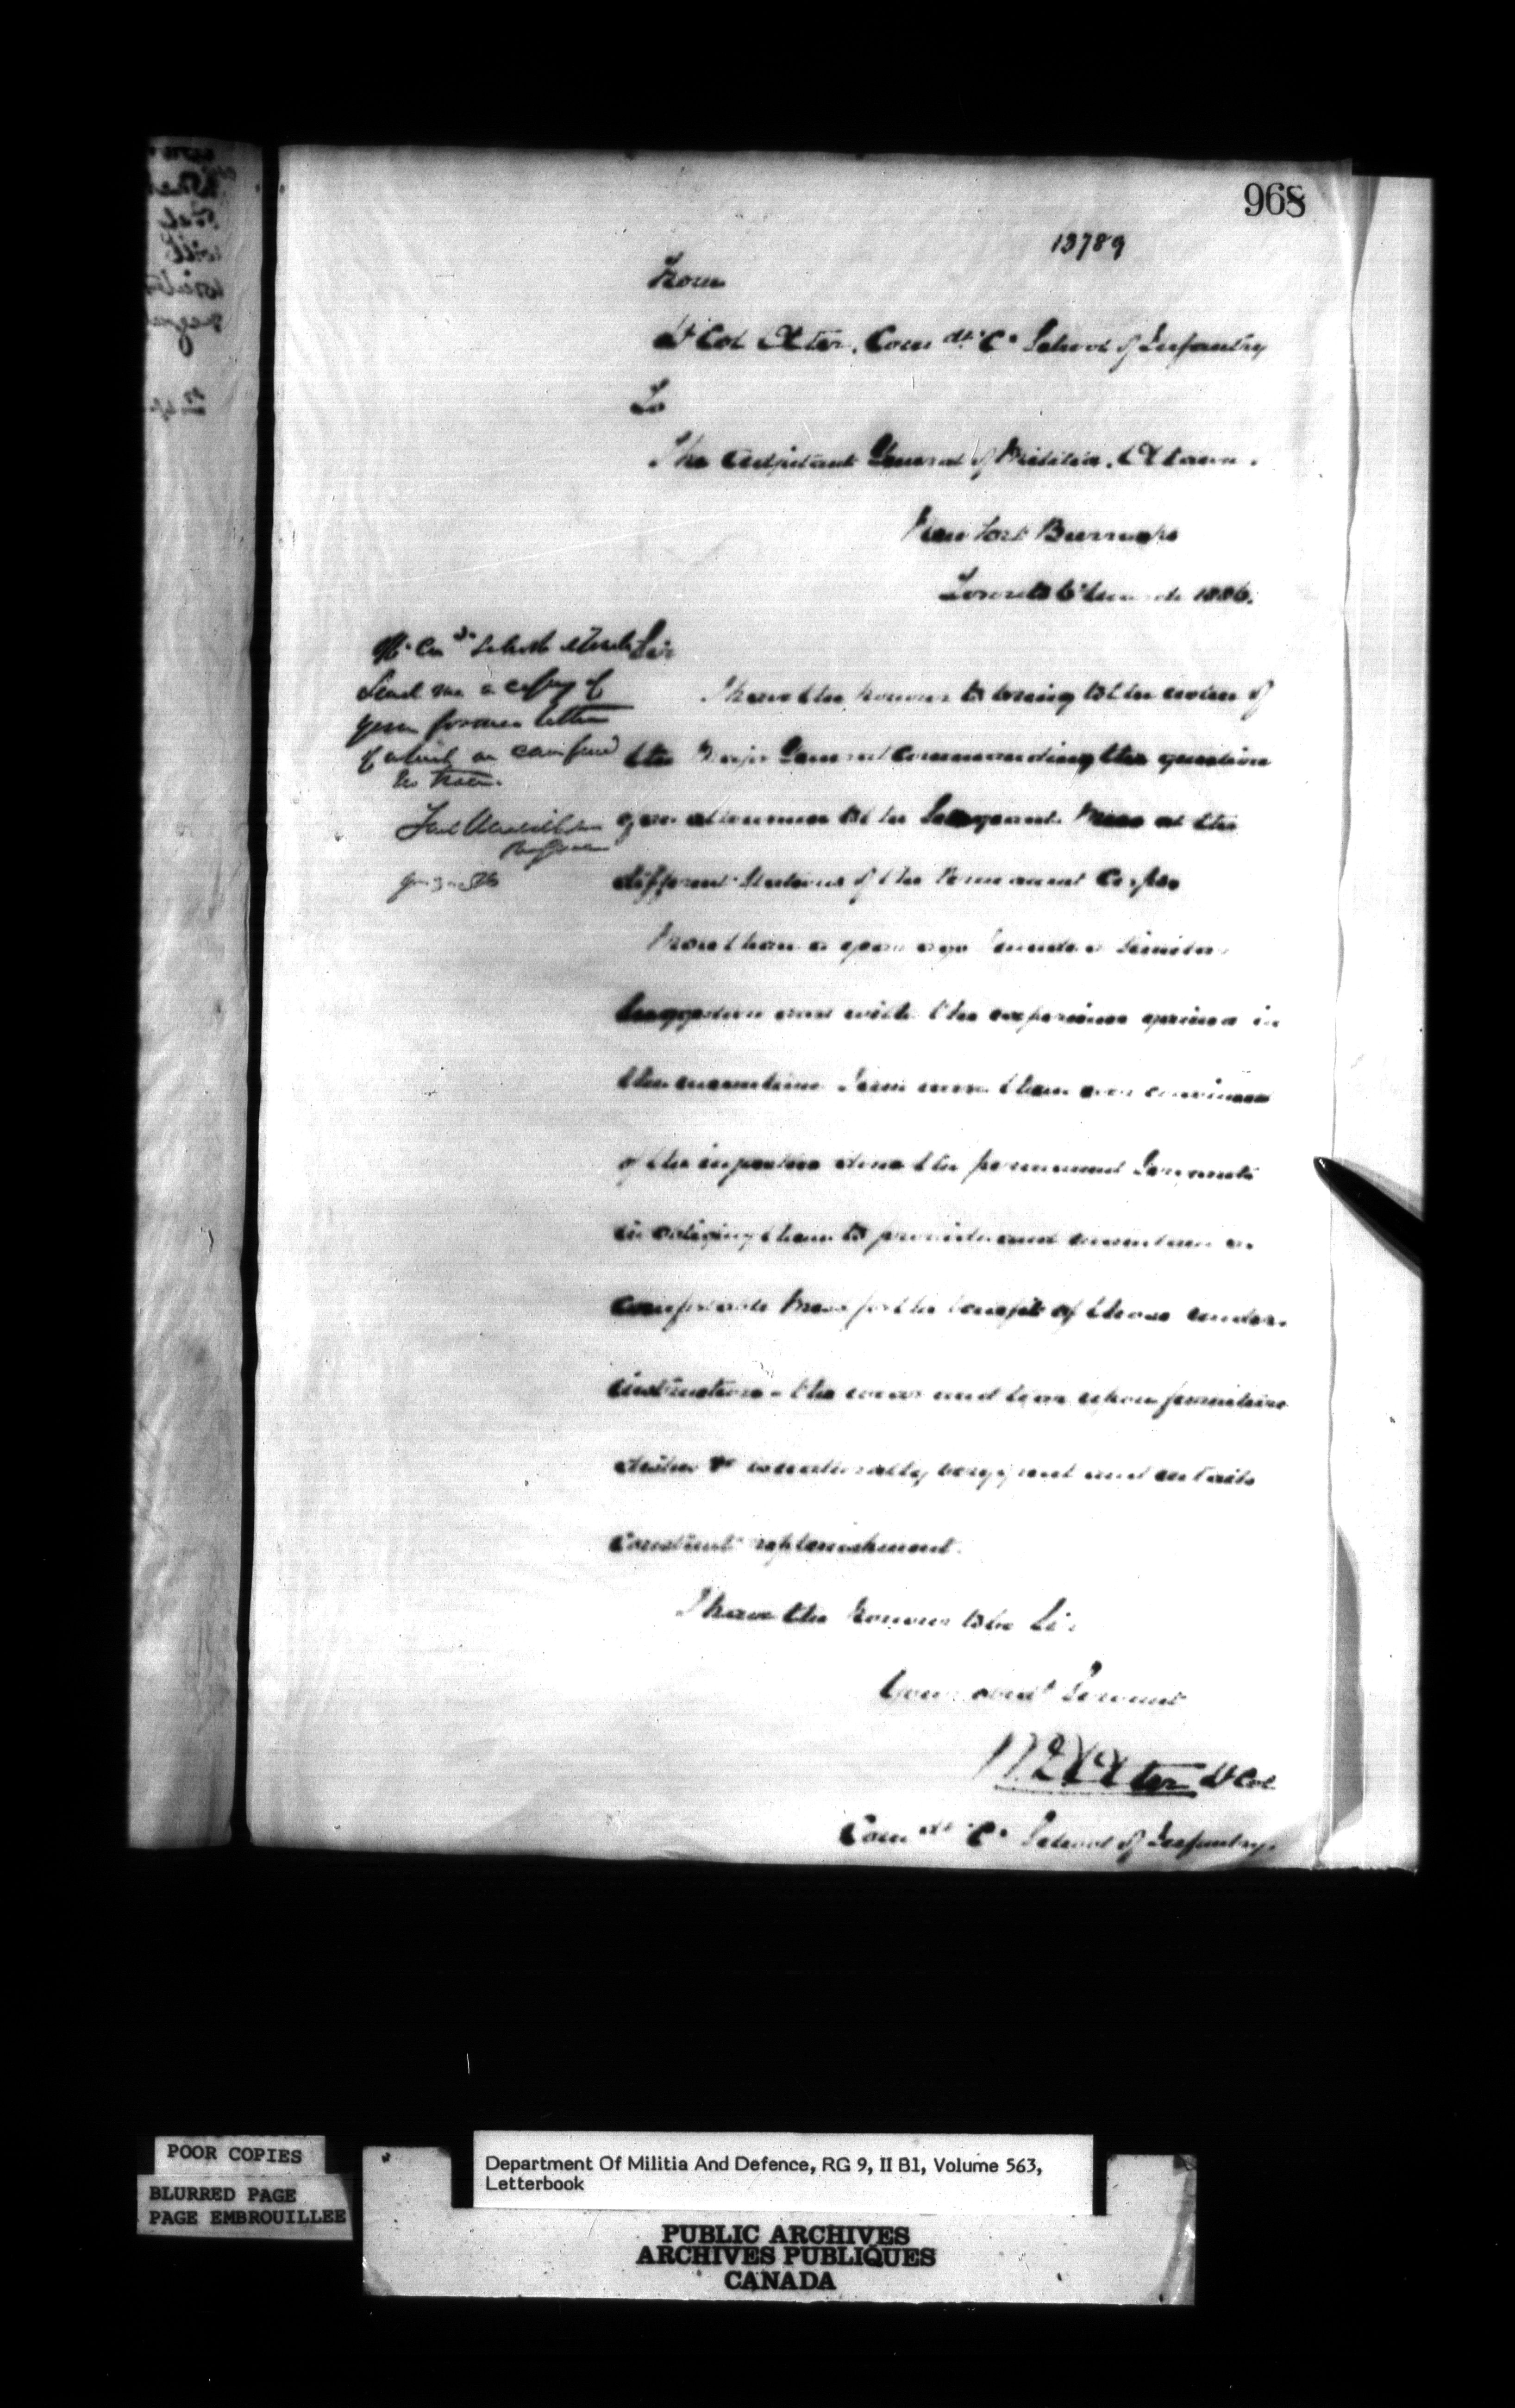 968
13789
From
Lt Col Otter. Comdt. "C" School of Infantry
To
The Adjutant General of Militia. Ottawa.
New Fort Barracks
Toronto 6th March 1886.
Sir
I have the honour to bring to the notice of
the Major General Commanding the question
of an allowance to the Sergeants Mess at the
different Stations of the Permanent Corps
More than a year ago I made a similar
suggestion and with the experience gained in
the meantime I am more than ever convinced
of the injustice done the permanent Sergeants
in obliging them to provide and maintain a
comfortable Mess for the benefit of those under
instruction - the wear and tear upon furniture
dishes &c is continually and entails
constant replenishment.
I have the honour to be Sir
Your obedt Servant
W D Otter Lt Col
Comdt "C" School of Infantry.
Send me a copy of
your former letter
of which we can find
no trace.
POOR COPIES
BLURRED PAGE
PAGE EMBROUILLEE
Department Of Militia And Defence, RG 9, II B1, Volume 563,
Letterbook
PUBLIC ARCHIVES
ARCHIVES PUBLIQUES
CANADA